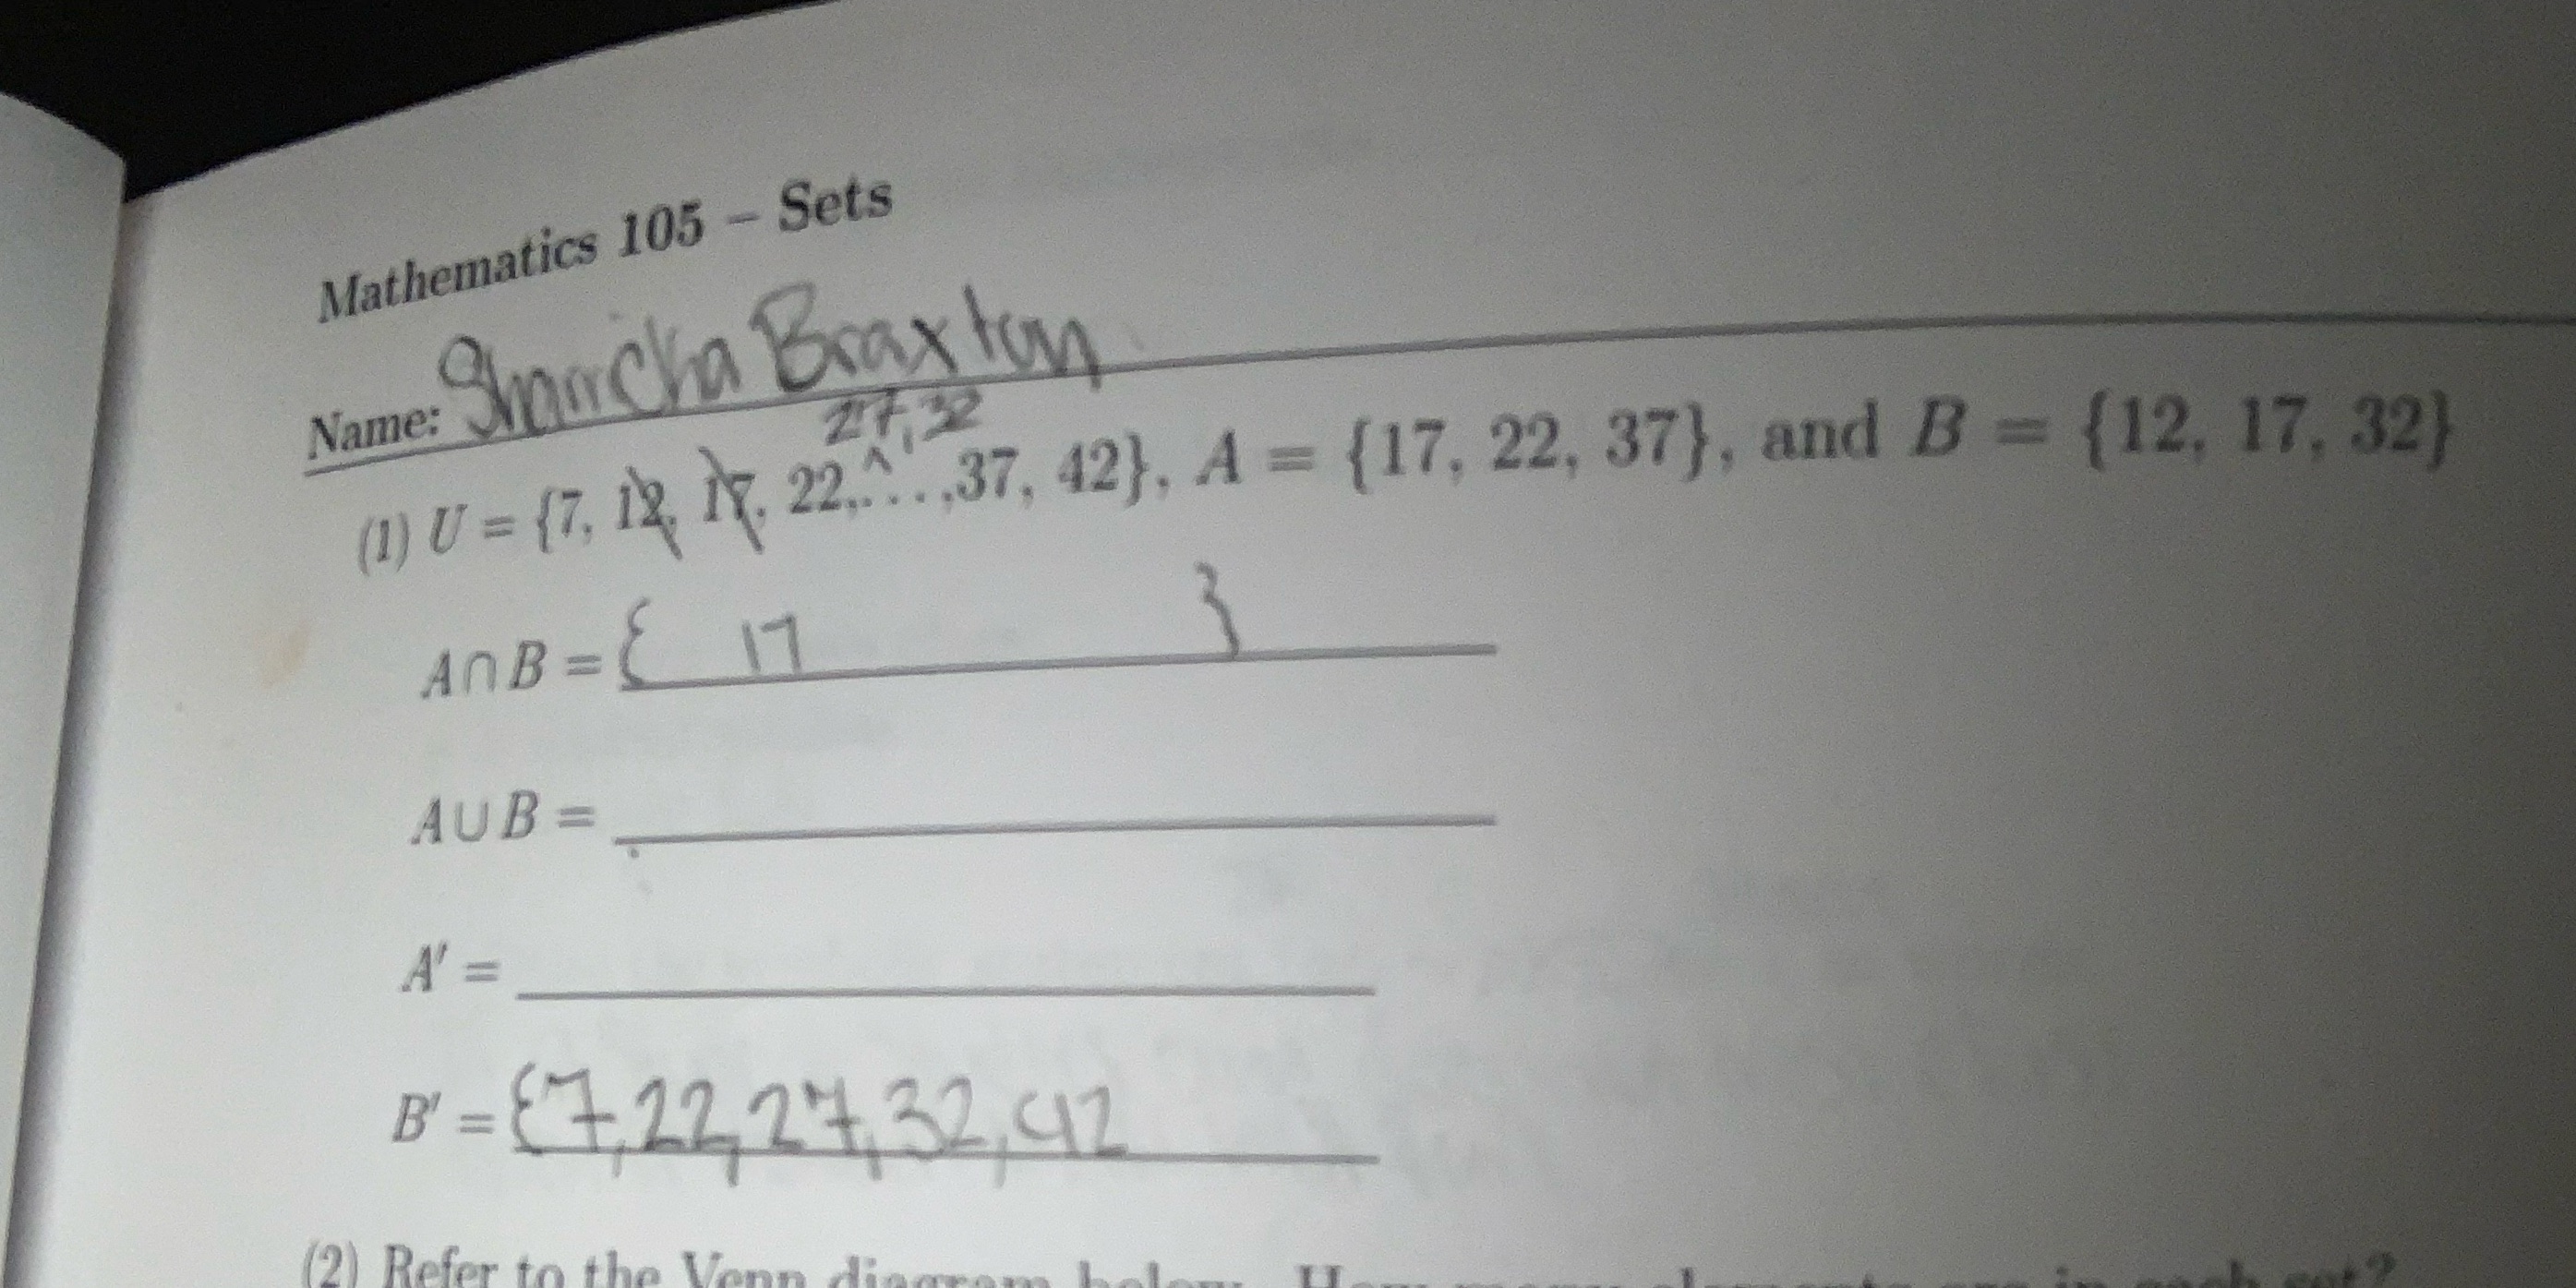 Mathematics 105 – Sets
Name: Braxton
27, 32
(1) U = {7, 12, 17, 22,. . . ,37, 42}, A = {17, 22, 37}, and B = {12, 17, 32}
A∩B = { 17 }
A∪B =
A′ =
B′ = {7, 22, 27, 32, 42
(2) Refer to the Venn diagram below. How many elements are in each set?